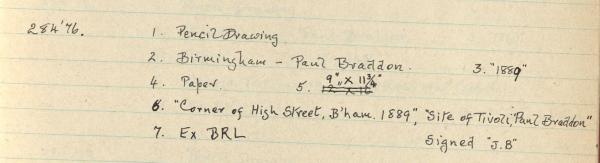 284'76. 1. Pencil Drawing.
2. Birmingham - Paul Braddon. 3. "1889"
4. Paper. 5. 9" x 11¾"
12 x 16
6. "Corner of High Street, B'ham. 1889", "Site of Tivoli, Paul Braddon"
7. Ex BRL Signed "J.B"